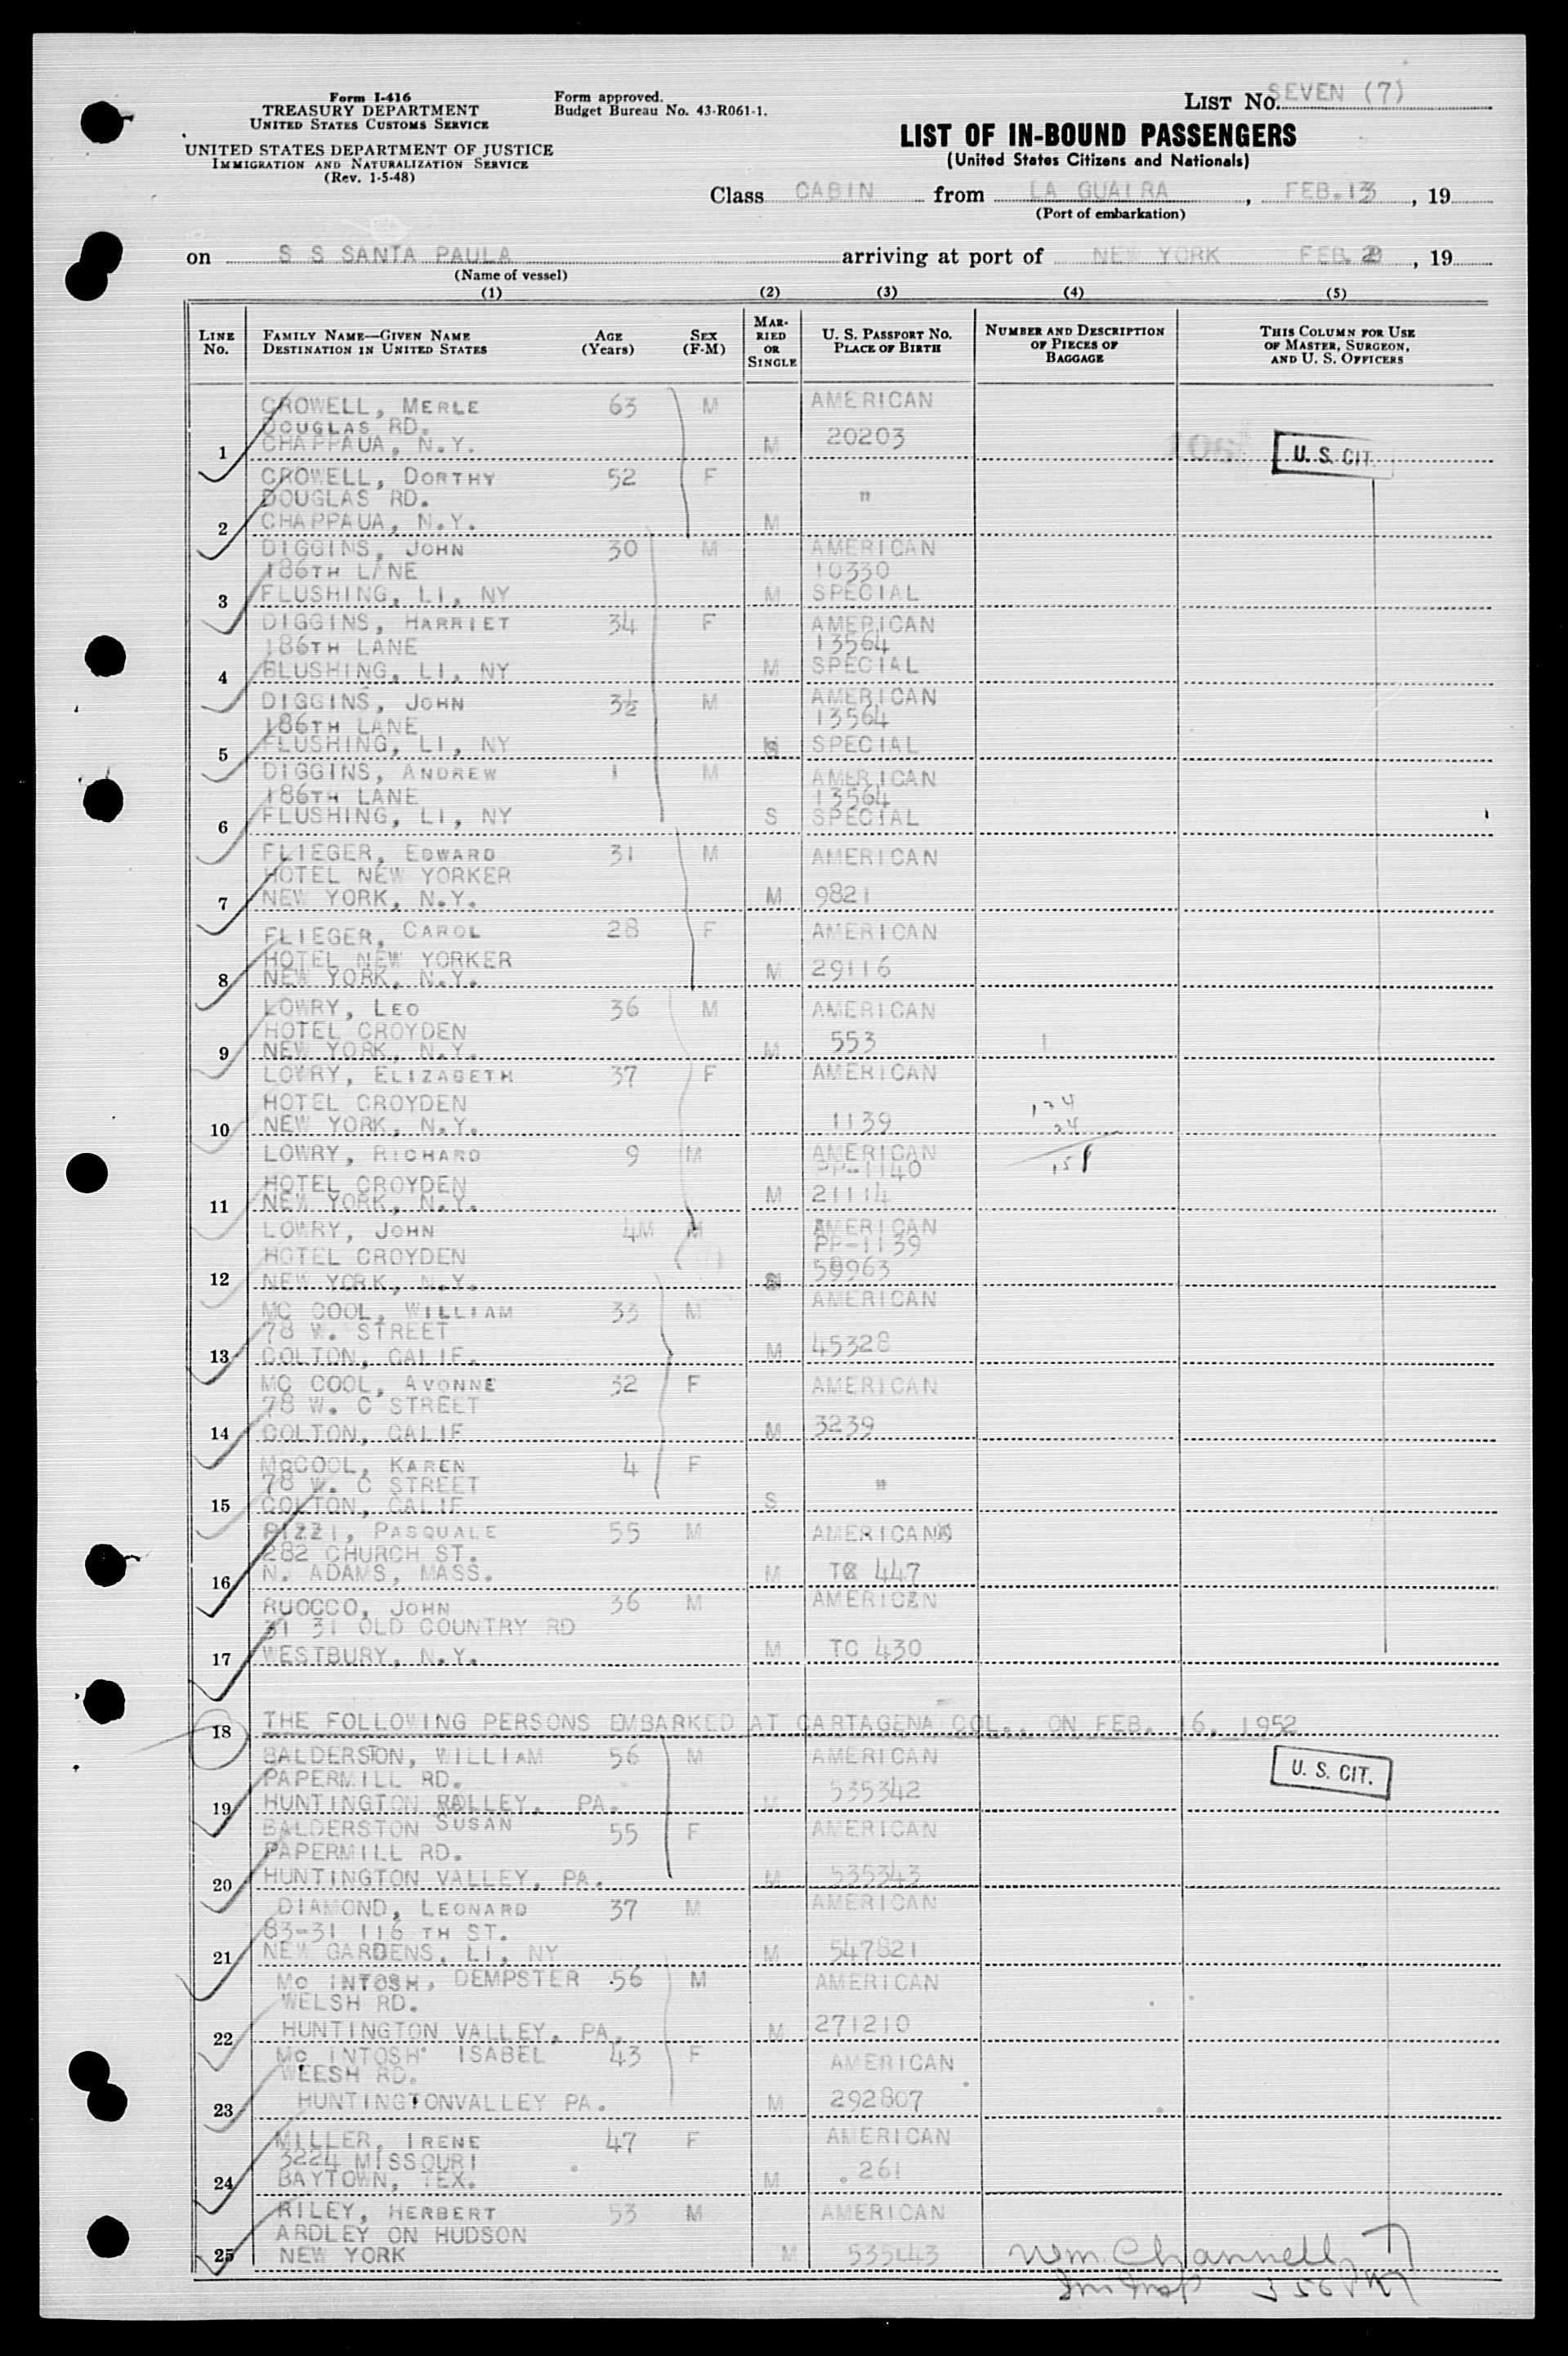 Form I-416
TREASURY DEPARTMENT
UNITED STATES CUSTOMS SERVICE
UNITED STATES DEPARTMENT OF JUSTICE
IMMIGRATION AND NATURALIZATION SERVICE
(Rev. 1-5-48)
Form approved.
Budget Bureau No. 43-R061-1.
LIST No. SEVEN (7)
LIST OF IN-BOUND PASSENGERS
(United States Citizens and Nationals)
Class CABIN from LA GUAIRA, FEB.13, 19
(Port of embarkation)
on S S SANTA PAULA arriving at port of NEW YORK FEB. 20, 19
(Name of vessel)
(1) (2) (3) (4) (5)
LINE No.
FAMILY NAME—GIVEN NAME
DESTINATION IN UNITED STATES
AGE (Years)
SEX (F-M)
MARRIED OR SINGLE
U. S. PASSPORT No.
PLACE OF BIRTH
NUMBER AND DESCRIPTION OF PIECES OF BAGGAGE
THIS COLUMN FOR USE OF MASTER, SURGEON, AND U. S. OFFICERS
CROWELL, MERLE 63 M AMERICAN
DOUGLAS RD.
1 CHAPPAUA, N.Y. M 20203 U. S. CIT.
CROWELL, DORTHY 52 F
DOUGLAS RD. "
2 CHAPPAUA, N.Y. M
DIGGINS, JOHN 30 M AMERICAN
186TH LANE 10330
3 FLUSHING, LI, NY M SPECIAL
DIGGINS, HARRIET 34 F AMERICAN
186TH LANE 13564
4 BLUSHING, LI, NY M SPECIAL
DIGGINS, JOHN 3½ M AMERICAN
186TH LANE 13564
5 FLUSHING, LI, NY S SPECIAL
DIGGINS, ANDREW 1 M AMERICAN
186TH LANE 13564
6 FLUSHING, LI, NY S SPECIAL
FLIEGER, EDWARD 31 M AMERICAN
HOTEL NEW YORKER
7 NEW YORK, N.Y. M 9821
FLIEGER, CAROL 28 F AMERICAN
HOTEL NEW YORKER
8 NEW YORK, N.Y. M 29116
LOWRY, LEO 36 M AMERICAN
HOTEL CROYDEN
9 NEW YORK, N.Y. M 553 1
LOWRY, ELIZABETH 37 F AMERICAN
HOTEL CROYDEN
10 NEW YORK, N.Y. 1139
LOWRY, RICHARD 9 M AMERICAN
HOTEL CROYDEN PP-1140
11 NEW YORK, N.Y. M 21114
LOWRY, JOHN 4M M AMERICAN
HOTEL CROYDEN PP-1139
12 NEW YORK, N.Y. 58963
MC COOL, WILLIAM 33 M AMERICAN
78 W. STREET
13 COLTON, CALIF. M 45328
MC COOL, AVONNE 32 F AMERICAN
78 W. C STREET
14 COLTON, CALIF M 3239
MCCOOL, KAREN 4 F
78 W. C STREET "
15 COLTON, CALIF S
PIZZI, PASQUALE 55 M AMERICAN
282 CHURCH ST.
16 N. ADAMS, MASS. M TC 447
RUOCCO, JOHN 36 M AMERICAN
31 31 OLD COUNTRY RD
17 WESTBURY, N.Y. M TC 430
18 THE FOLLOWING PERSONS EMBARKED AT CARTAGENA COL., ON FEB. 16, 1952
BALDERSTON, WILLIAM 56 M AMERICAN U. S. CIT.
PAPERMILL RD. 535342
19 HUNTINGTON PA. M
BALDERSTON SUSAN 55 F AMERICAN
PAPERMILL RD.
20 HUNTINGTON VALLEY, PA. M 535343
DIAMOND, LEONARD 37 M AMERICAN
83-31 116 TH ST.
21 NEW GARDENS, LI, NY M 547821
MC INTOSH, DEMPSTER 56 M AMERICAN
WELSH RD.
22 HUNTINGTON VALLEY, PA. M 271210
MC INTOSH ISABEL 43 F AMERICAN
WEESH RD.
23 HUNTINGTONVALLEY PA. M 292807
MILLER, IRENE 47 F AMERICAN
3224 MISSOURI
24 BAYTOWN, TEX. M 261
RILEY, HERBERT 53 M AMERICAN
ARDLEY ON HUDSON
25 NEW YORK M 535443
Wm. Channell